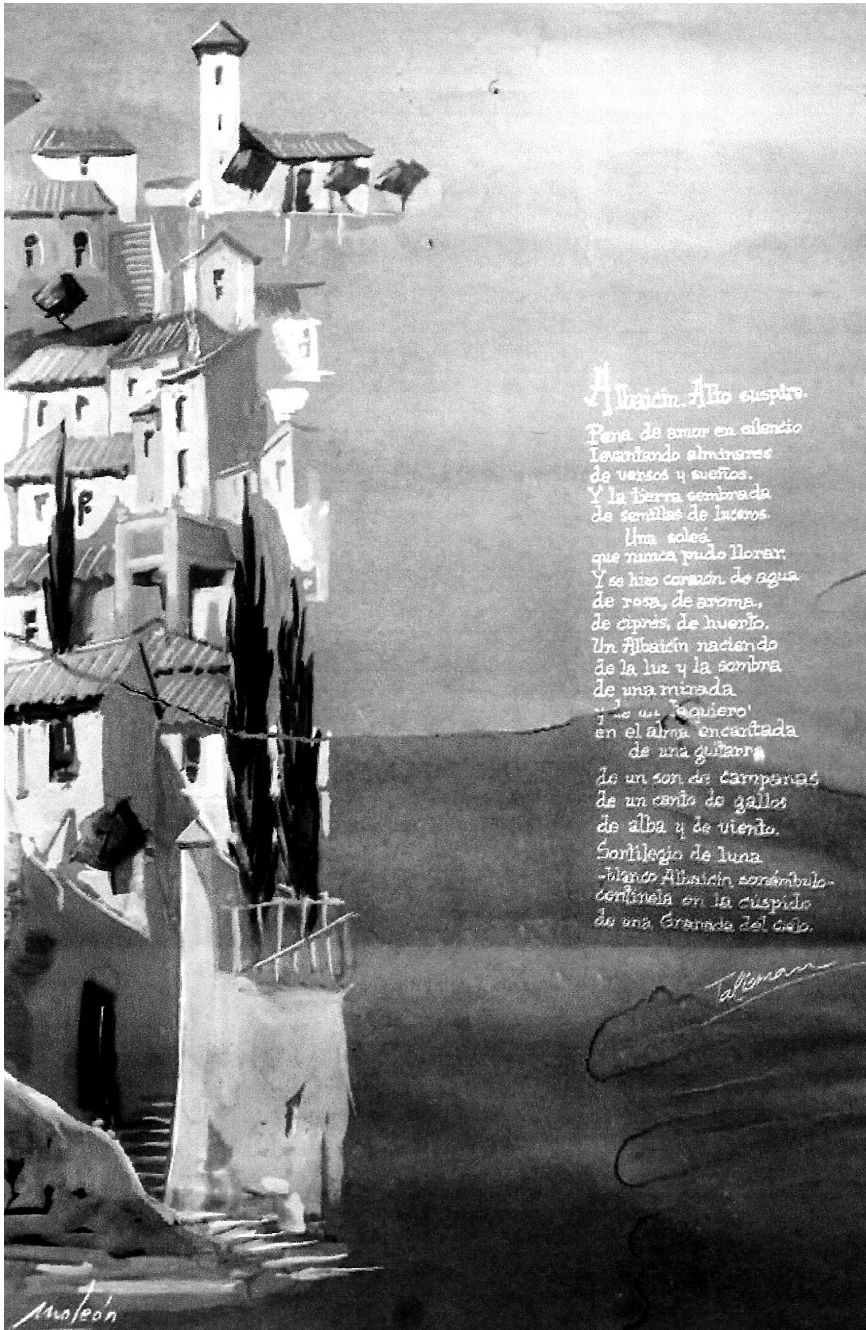 Albaicín. Alto suspiro.
Pena de amor en silencio
levantando alminares
de versos y sueños.
Y la tierra sembrada
de semillas de luceros.
Una soleá
que nunca pudo llorar.
Y se hizo corazón de agua
de rosa, de aroma,
de ciprés, de huerto.
Un Albaicín naciendo
de la luz y la sombra
de una mirada
y de un
en el alma encantada
de una guitarra
de un son de campanas
de un canto de gallos
de alba y de viento.
Sortilegio de luna
-blanco Albaicín sonámbulo-
centinela en la cúspide
de una Granada del cielo.
Talisman
Moleón